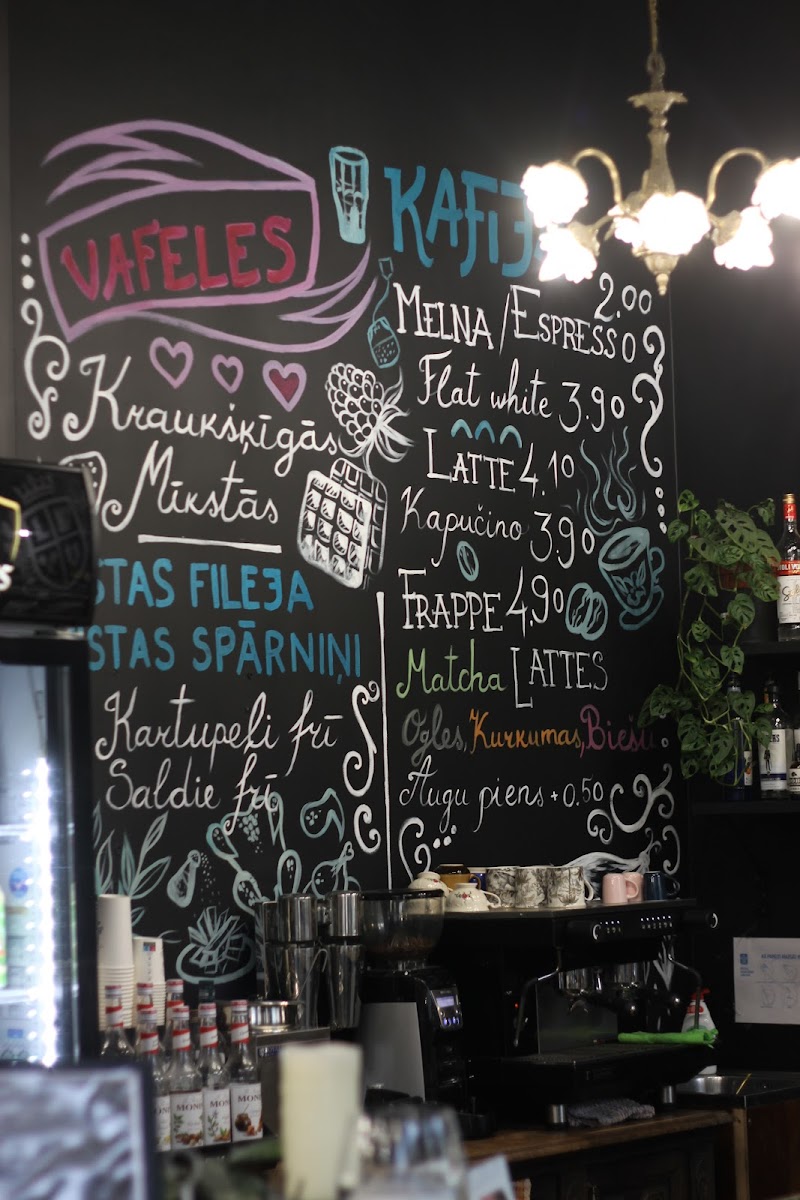 VAFELES
Kraukšķīgās
Mīkstās
STAS FILEJA
STAS SPĀRNIŅI
Kartupeļi frī
Saldie frī
KAFIJ
2.00
MELNA/ESPRESSO
Flat white 3.90
LATTE 4.10
Kapučino 3.90
FRAPPE 4.90
Matcha LATTES
Ogles, Kurkumas, Biešu
Augu piens + 0.50